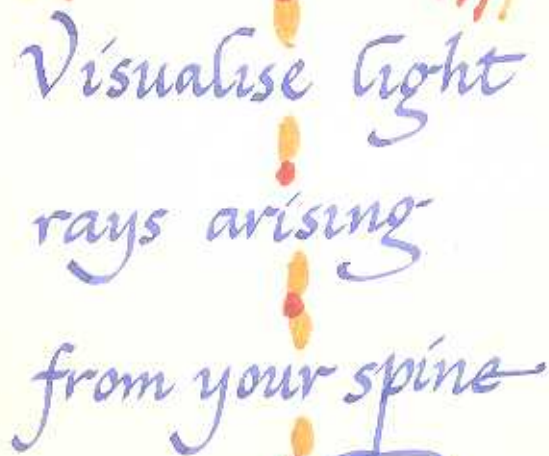 Visualise light
rays arising
from your spine